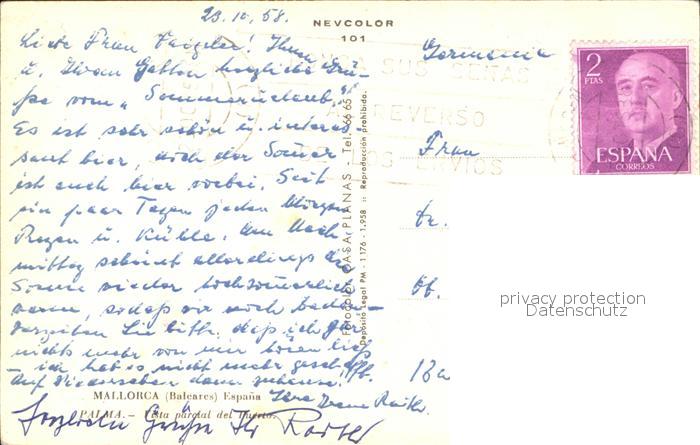 23.10.58.
NEVCOLOR
101
Liebe Frau
u. Ihrem Gatten herzliche Grü-
ße vom „Sommerurlaub."
Es ist sehr schön u. interes-
sant hier, doch der Sommer
ist auch hier vorbei. Seit
ein paar Tagen jeden Morgen
Regen u. Kühle. Am Nach-
mittag scheint allerdings die
Sonne wieder hochsommerlich
warm, sodaß wir noch baden
Verzeihen Sie bitte, daß ich gar
nichts mehr von mir hören ließ
– ich hab es nicht mehr geschafft.
Auf Wiedersehen dann zuhause!
Ihre
Herzliche Grüße Ihr
MALLORCA (Baleares) España
PALMA.- Vista parcial del Puerto.
Fotocolor CASA PLANAS - Tel.
Depósito Legal PM - 1176 - 1.958 :: Reproducción prohibida.
Germania
Frau
Dr.
2
PTAS
ESPAÑA
CORREOS
SUS SEÑAS
REVERSO
ENVIOS
privacy protection
Datenschutz